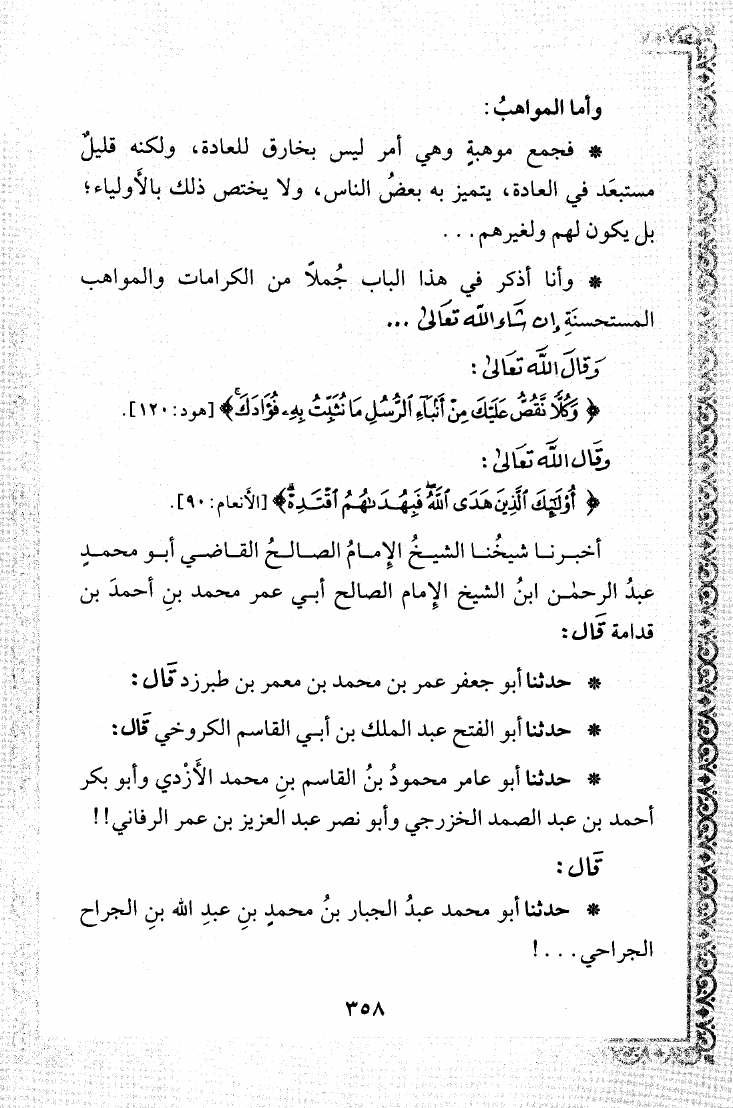 وأما المواهبُ:
* فجمع موهبةٍ وهي أمر ليس بخارق للعادة، ولكنه قليلٌ
مستبعَد في العادة، يتميز به بعضُ الناس، ولا يختص ذلك بالأولياء؛
بل يكون لهم ولغيرهم...
* وأنا أذكر في هذا الباب جُملاً من الكرامات والمواهب
المستحسنَةِ إن شَاء اللّه تعَالىٰ ...
وَقالَ اللَّه تعَالىٰ:
﴿ وَكُلًّا نَّقُصُّ عَلَيْكَ مِنْ أَنۢبَآءِ ٱلرُّسُلِ مَا نُثَبِّتُ بِهِۦ فُؤَادَكَۚ ﴾ [هود: ١٢٠].
وقَال اللَّه تعَالىٰ:
﴿ أُوْلَٰٓئِكَ ٱلَّذِينَ هَدَى ٱللَّهُۖ فَبِهُدَىٰهُمُ ٱقْتَدِهْۗ ﴾ [الأنعام: ٩٠].
أخبرنا شيخُنا الشيخُ الإمامُ الصالحُ القاضي أبو محمدٍ
عبدُ الرحمٰن ابنُ الشيخ الإمام الصالح أبي عمر محمد بنِ أحمدَ بن
قدامة قَال:
* حدثنا أبو جعفر عمر بن محمد بن معمر بن طبرزد قَال:
* حدثنا أبو الفتح عبد الملك بن أبي القاسم الكروخي قَال:
* حدثنا أبو عامر محمودُ بنُ القاسم بنِ محمد الأَزْدي وأبو بكر
أحمد بن عبد الصمد الخزرجي وأبو نصر عبد العزيز بن عمر الرفاني!!
قَال:
* حدثنا أبو محمد عبدُ الجبار بنُ محمدٍ بنِ عبدِ الله بنِ الجراح
الجراحي...!
٣٥٨